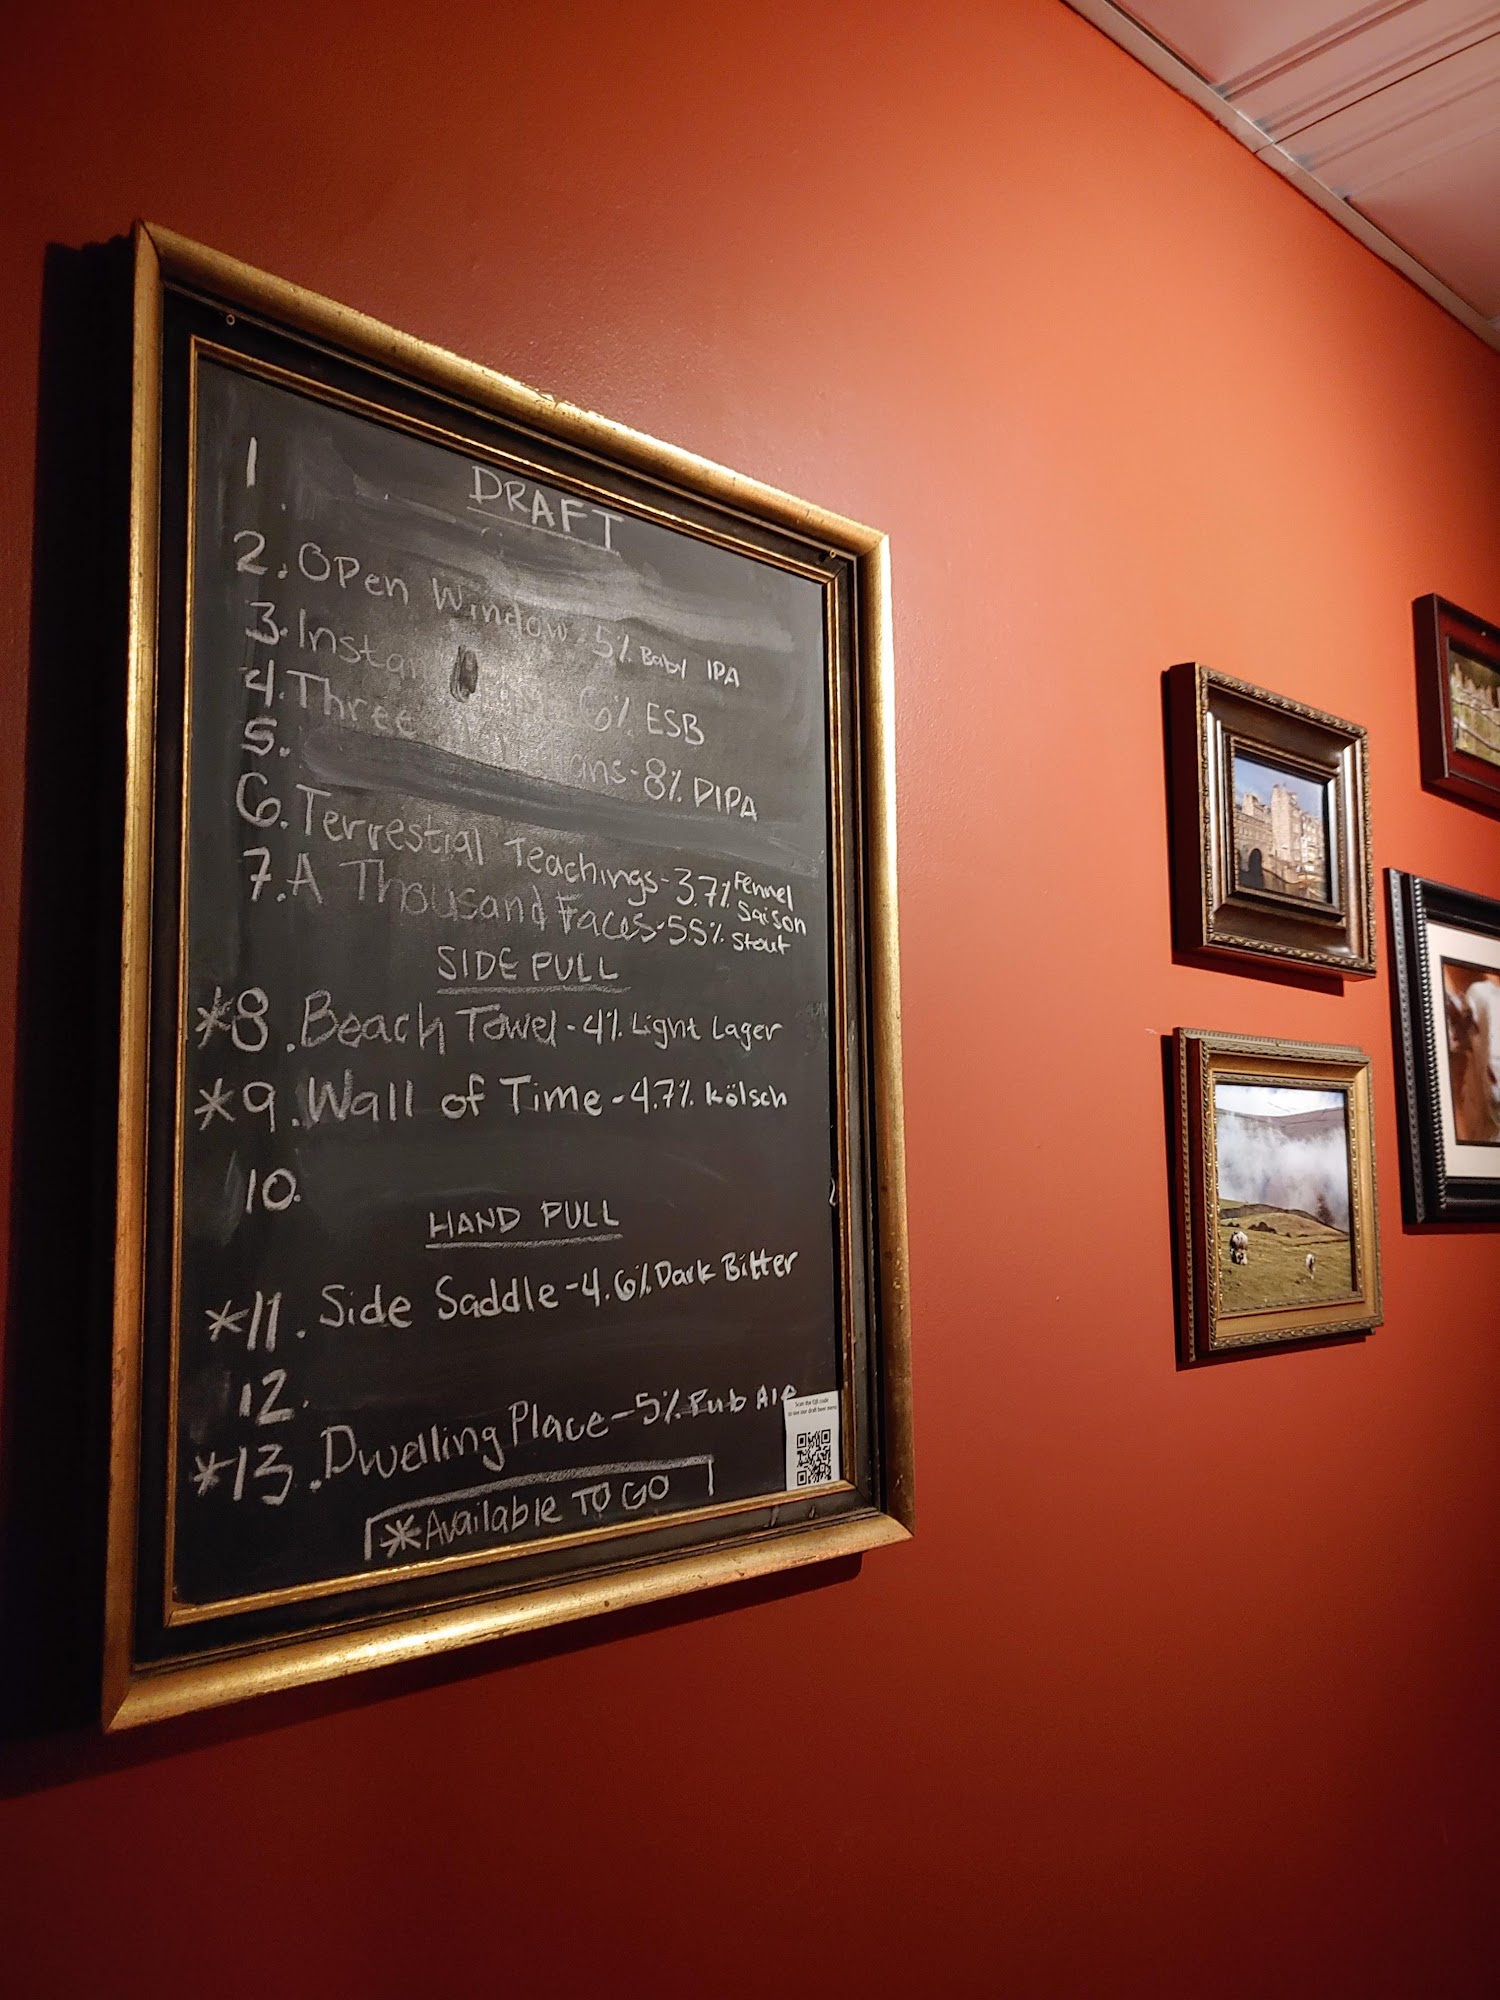 DRAFT
1.
2. Open Window - 5% Baby IPA
3. Instan 6% ESB
4. Three ans - 8% DIPA
5.
6. Terrestrial Teachings - 3.7% Fennel Saison
7. A Thousand Faces - 5.5% Stout
SIDE PULL
*8. Beach Towel - 4% Light Lager
*9. Wall of Time - 4.7% Kölsch
10.
HAND PULL
*11. Side Saddle - 4.6% Dark Bitter
12.
*13. Dwelling Place - 5% Pub Ale
Scan the QR code
to see our draft beer menu
*Available TO GO